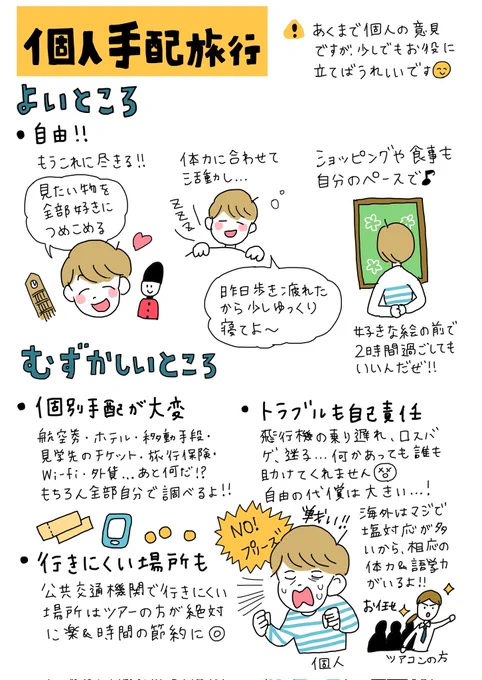 個人手配旅行
あくまで個人の意見
ですが、少しでもお役に
立てばうれしいです
よいところ
• 自由!!
もうこれに尽きる!!
見たい物を
全部好きに
つめこめる
体力に合わせて
活動し…
ZZZZ
昨日歩き疲れた
から少しゆっくり
寝てよ〜
ショッピングや食事も
自分のペースで♪
好きな絵の前で
2時間過ごしても
いいんだぜ!!
むずかしいところ
• 個別手配が大変
航空券・ホテル・移動手段・
見学先のチケット・旅行保険・
Wi-fi・外貨…あと何だ!?
もちろん全部自分で調べるよ!!
• 行きにくい場所も
公共交通機関で行きにくい
場所はツアーの方が絶対
に楽&時間の節約に◎
• トラブルも自己責任
飛行機の乗り遅れ、ロスバ
ゲ、迷子…何かあっても誰も
助けてくれません
自由の代償は大きい…!
NO!
プリーズ!
海外はマジで
塩対応が多
いから、相応の
体力&語学力
がいるよ!!
個人
お任せ
ツアコンの方